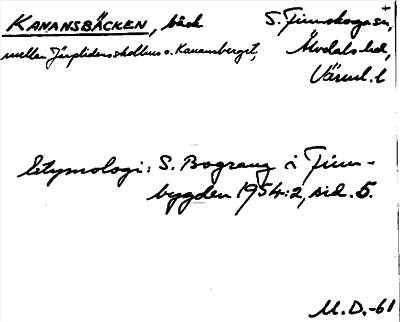 KANANSBÄCKEN, bäck S. Finnskoga sn,
mellan Järplidens skolhus o. Kanansberget, Älvdals hd,
Värml. l
Etymologi: S. Bograng i Finn-
bygden 1954:2, sid. 5.
M.D.-61